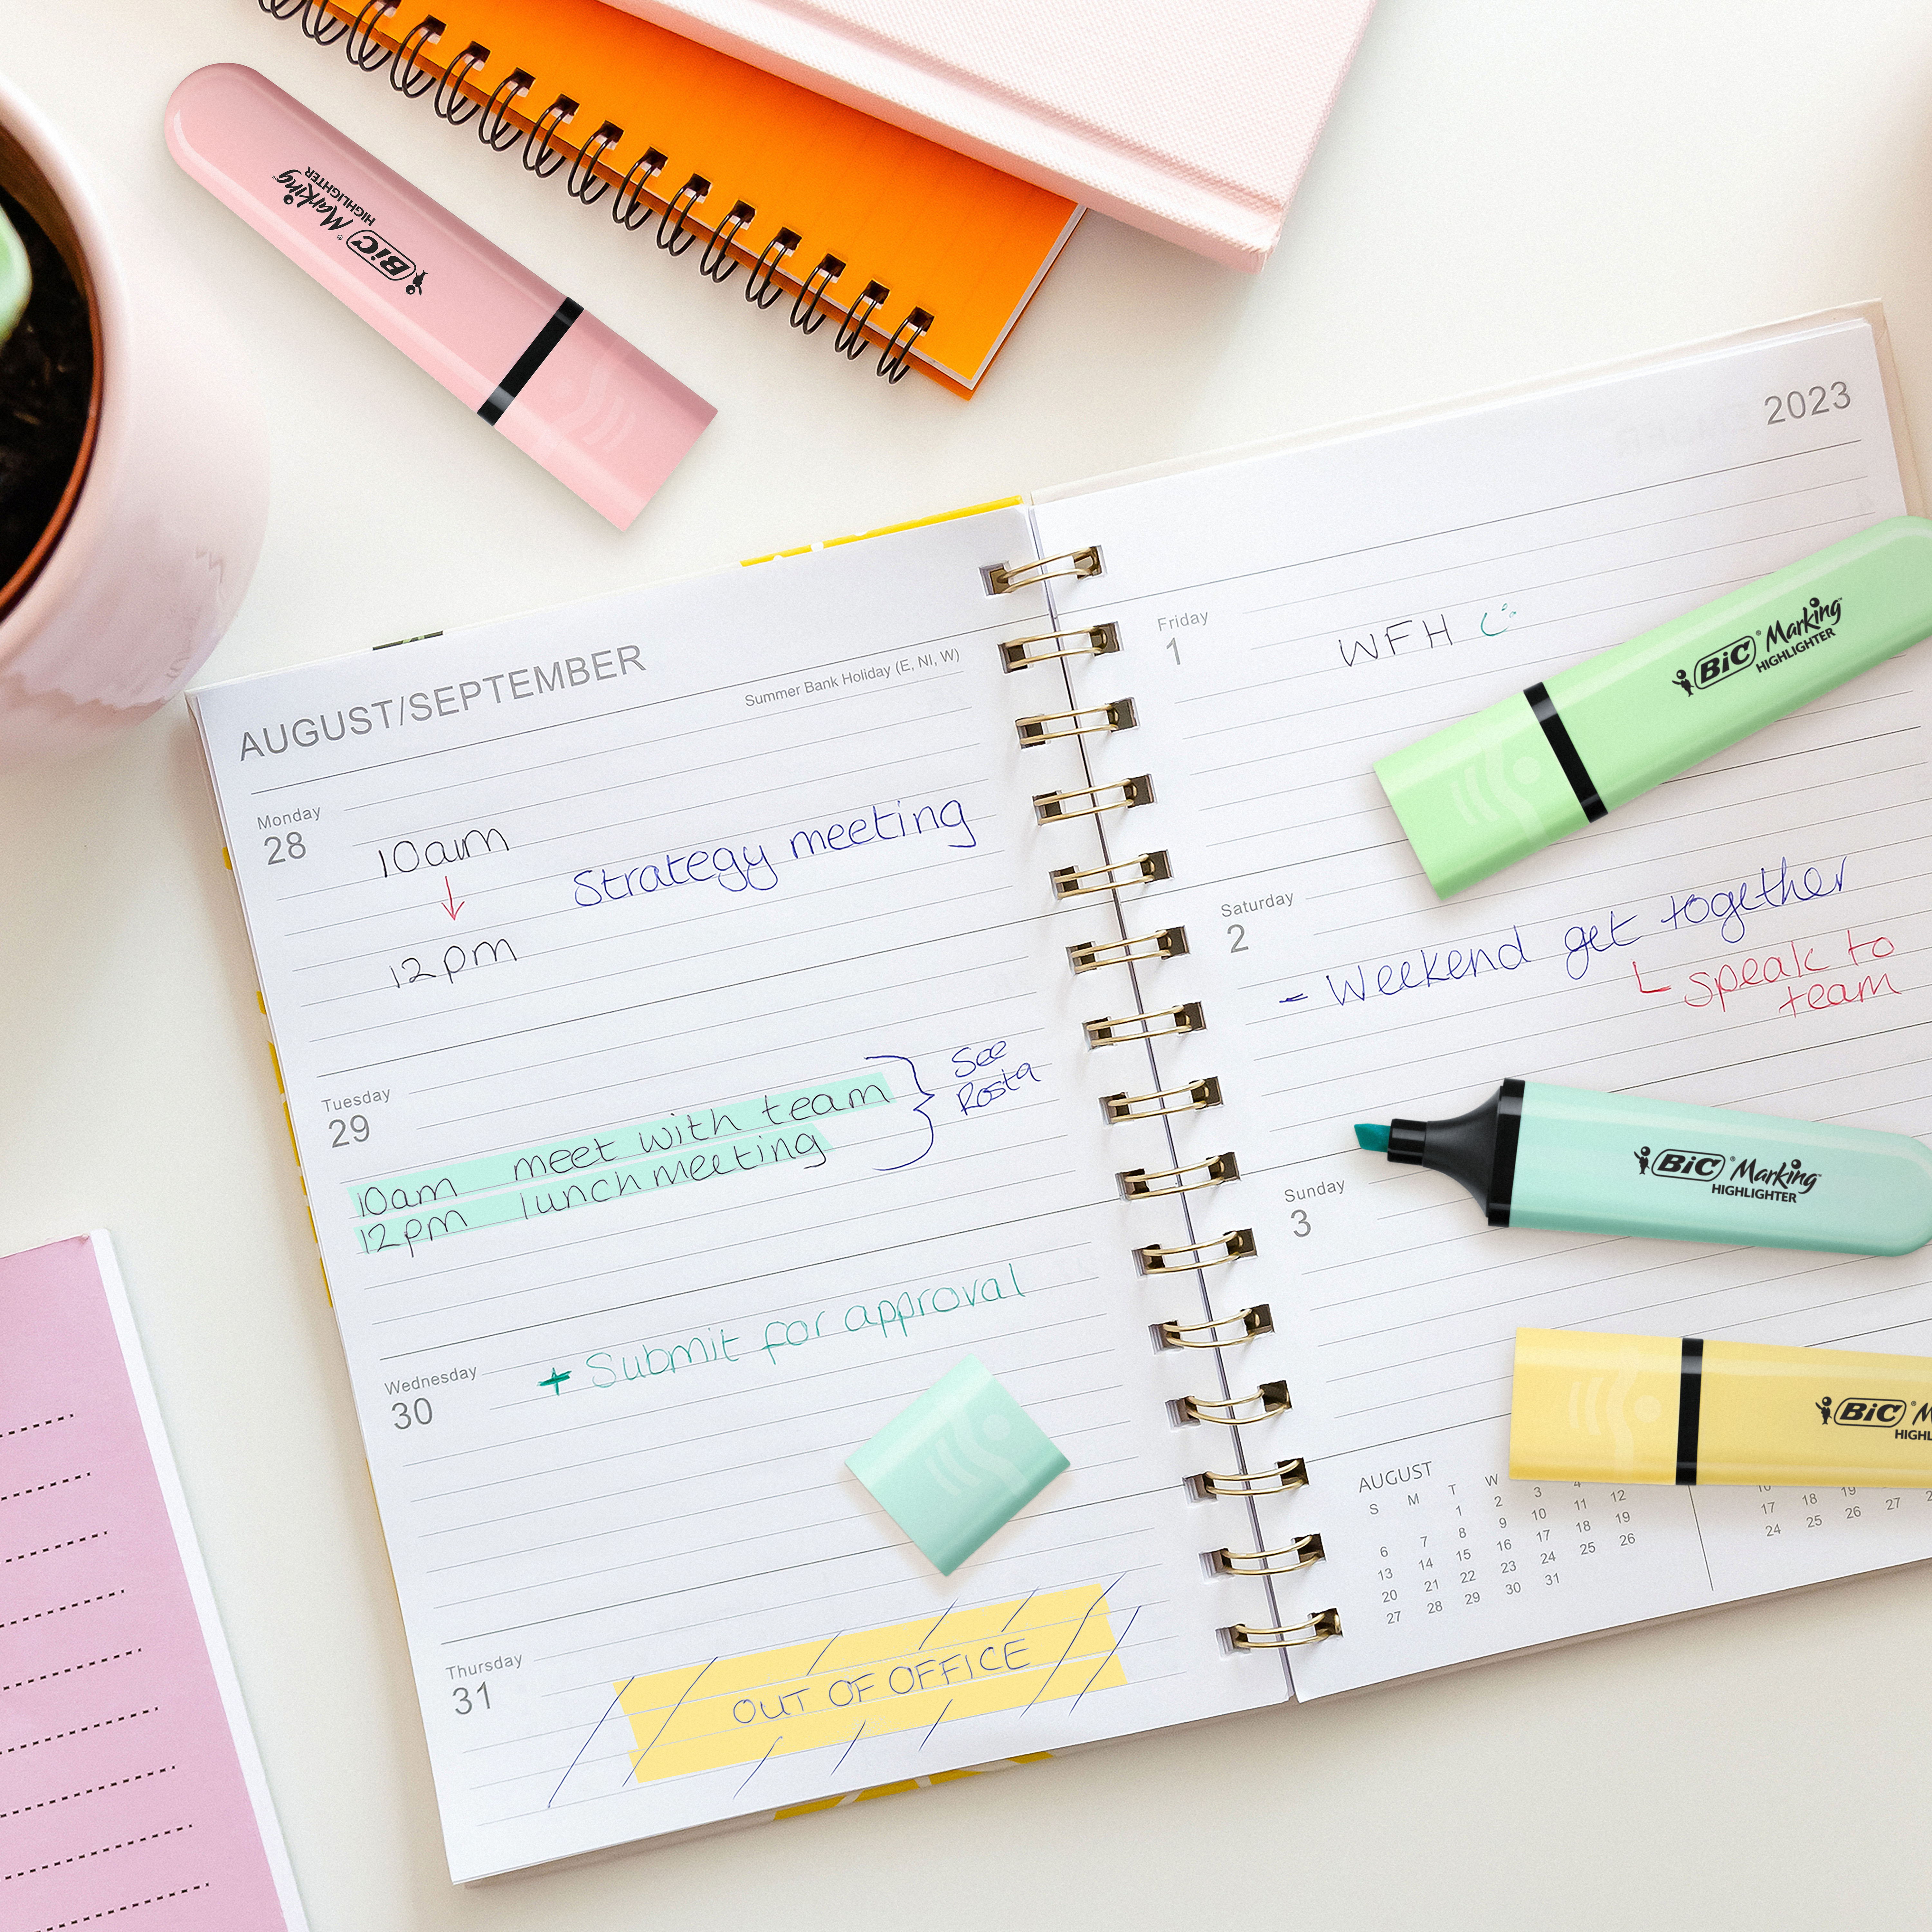 BiC® Marking™
HIGHLIGHTER
2023
AUGUST/SEPTEMBER
Summer Bank Holiday (E, NI, W)
Monday
28
10am
Strategy meeting
12pm
Tuesday
29
10am meet with team
12pm lunch meeting
See
Rosta
Wednesday
30
+ Submit for approval
Thursday
31
OUT OF OFFICE
Friday
1
WFH
BiC® Marking™
HIGHLIGHTER
Saturday
2
- Weekend get together
speak to
team
BiC® Marking™
HIGHLIGHTER
Sunday
3
BiC® M
HIGHL
AUGUST
S M T W
1 2 3 4
6 7 8 9 10 11 12
13 14 15 16 17 18 19
20 21 22 23 24 25 26
27 28 29 30 31
17 18 19
24 25 26 27